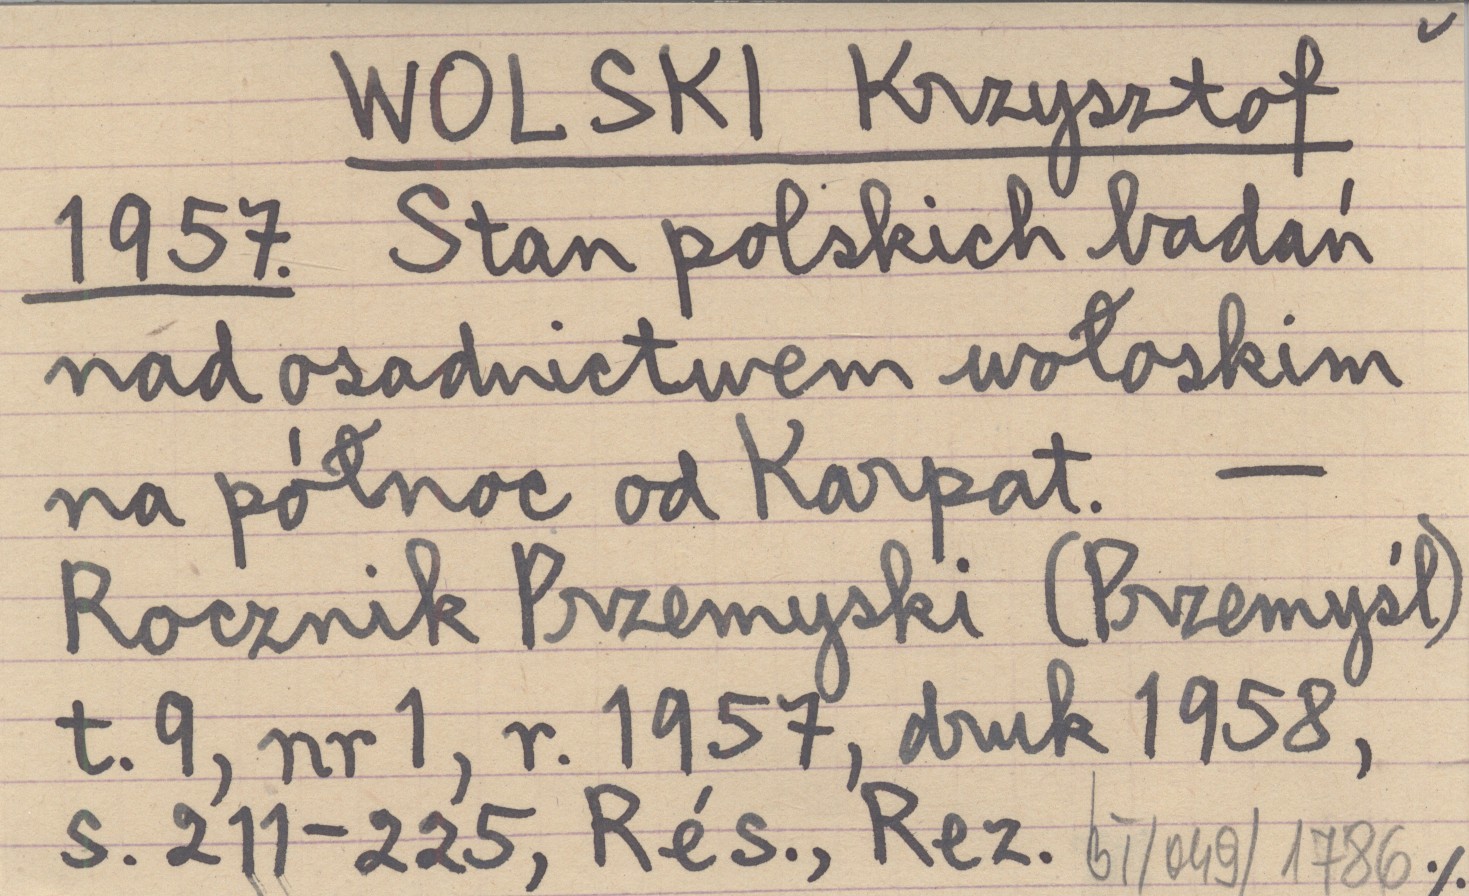 WOLSKI Krzysztof
1957. Stan polskich badań
nad osadnictwem wołoskim
na północ od Karpat. —
Rocznik Przemyski (Przemyśl)
t. 9, nr 1, r. 1957, druk 1958,
s. 211-225, Rés., Rez. /049/1786 ./.